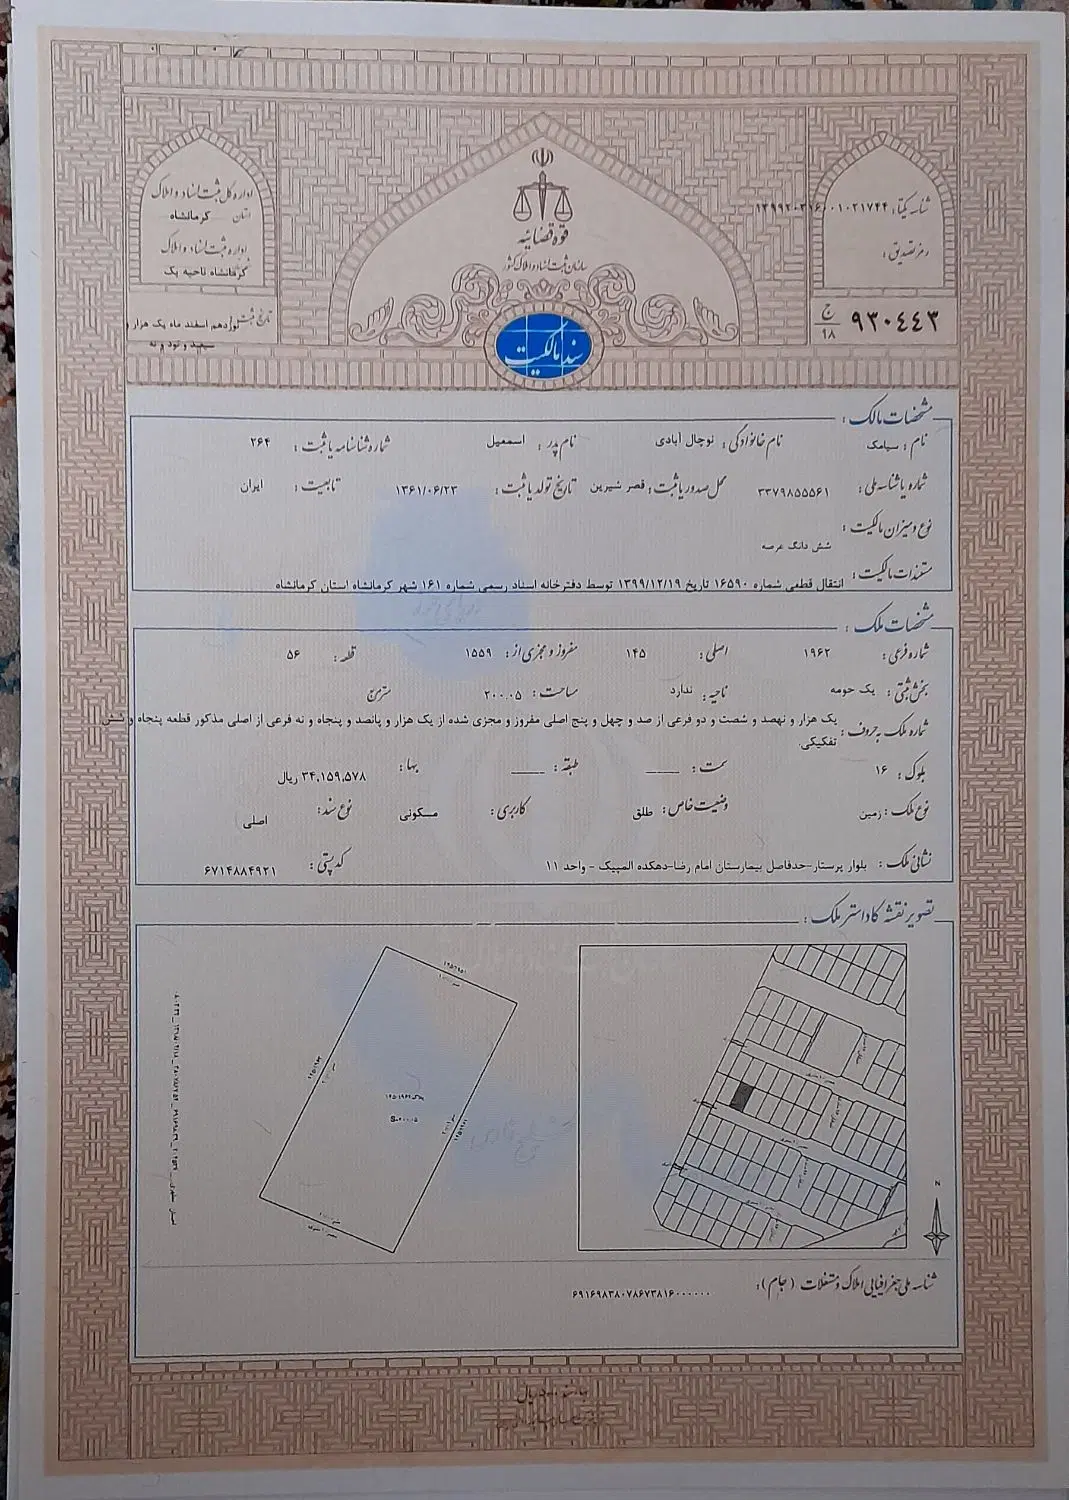 قوه قضائیه
سازمان ثبت اسناد و املاک کشور
سند مالکیت
شناسه یکتا:
رمز تصدیق:
ج
۱۸
۹۳۰۴۴۳
اداره کل ثبت اسناد و املاک
استان کرمانشاه
اداره ثبت اسناد و املاک
کرمانشاه ناحیه یک
تاریخ ثبت: نوزدهم اسفند ماه یک هزار و
سیصد و نود و نه
مشخصات مالک:
نام: سیامک نام خانوادگی: نوچال آبادی نام پدر: اسمعیل شماره شناسنامه یا ثبت: ۲۶۴
شماره یا شناسه ملی: ۳۳۷۹۸۵۵۵۶۱ محل صدور یا ثبت: قصر شیرین تاریخ تولد یا ثبت: ۱۳۶۱/۰۶/۲۳ تابعیت: ایران
نوع و میزان مالکیت:
شش دانگ عرصه
مستندات مالکیت:
انتقال قطعی شماره ۱۶۵۹۰ تاریخ ۱۳۹۹/۱۲/۱۹ توسط دفترخانه اسناد رسمی شماره ۱۶۱ شهر کرمانشاه استان کرمانشاه
مشخصات ملک:
شماره فرعی: ۱۹۶۲ اصلی: ۱۴۵ مفروز و مجزی از: ۱۵۵۹ قطعه: ۵۶
بخش ثبتی: یک حومه ناحیه: ندارد مساحت: ۲۰۰.۰۵ مترمربع
شماره ملک به حروف: یک هزار و نهصد و شصت و دو فرعی از صد و چهل و پنج اصلی مفروز و مجزی شده از یک هزار و پانصد و پنجاه و نه فرعی از اصلی مذکور قطعه پنجاه و شش
تفکیکی.
بلوک: ۱۶ سمت: ____ طبقه: ____ بها: ۳۴,۱۵۹,۵۷۸ ریال
نوع ملک: زمین وضعیت خاص: طلق کاربری: مسکونی نوع سند: اصلی
نشانی ملک: بلوار پرستار-حدفاصل بیمارستان امام رضا-دهکده المپیک - واحد ۱۱ کدپستی: ۶۷۱۴۸۸۴۹۲۱
تصویر نقشه کاداستر ملک:
N
شناسه ملی جغرافیایی املاک و مستغلات (جام): ۶۹۱۶۹۸۳۸۰۷۸۶۷۳۸۱۶۰۰۰۰۰۰